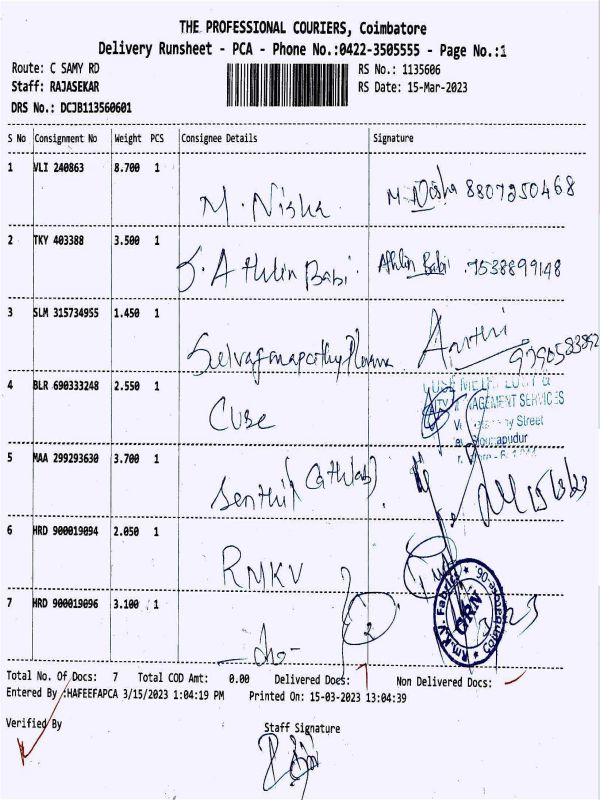 THE PROFESSIONAL COURIERS, Coimbatore
Delivery Runsheet - PCA - Phone No.:0422-3505555 - Page No.:1
Route: C SAMY RD
RS No.: 1135606
Staff: RAJASEKAR
RS Date: 15-Mar-2023
DRS No.: DCJB113560601
S No Consignment No Weight PCS Consignee Details Signature
1 VLI 240863 8.700 1
M. Nisha M. Nisha 8807250468
2 TKY 403388 3.500 1
J. Athlin Babi Athlin Babi 7538899148
3 SLM 315734955 1.450 1
Selvaganapathy Pharma Arthi
4 BLR 690333248 2.550 1
CUBE
MANAGEMENT SERVICES
Street
5 MAA 299293630 3.700 1
Senthil (Cathlab)
6 HRD 900019094 2.050 1
RMKV
7 HRD 900019096 3.100 1
-do-
Rm.K.V. Fabrics
GRN
Coimbatore-06.
Total No. Of Docs: 7 Total COD Amt: 0.00 Delivered Docs: Non Delivered Docs:
Entered By :HAFEEFAPCA 3/15/2023 1:04:19 PM Printed On: 15-03-2023 13:04:39
Verified By
Staff Signature